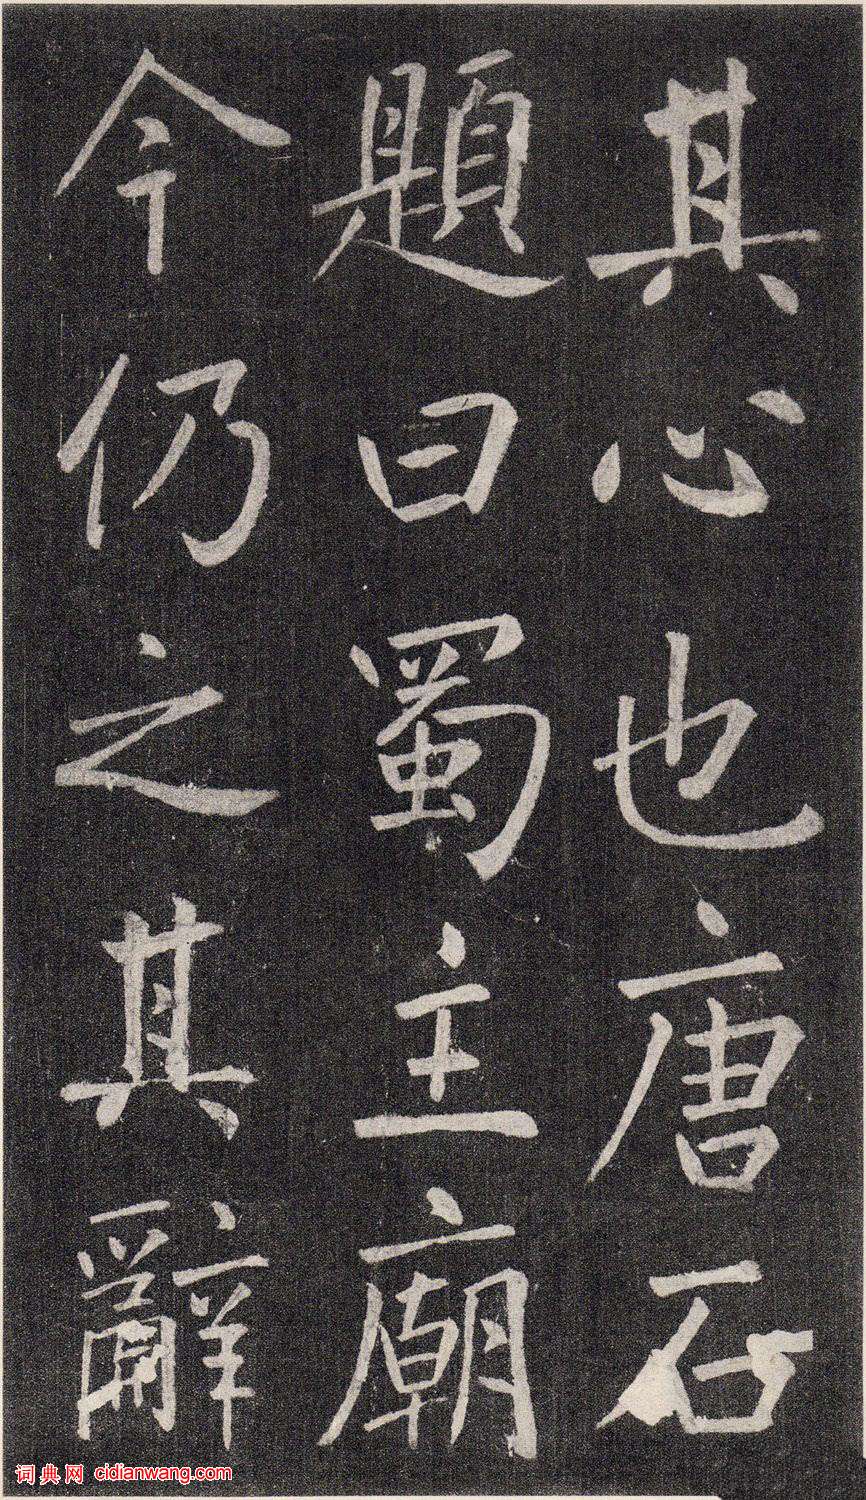 其心也唐石
題曰蜀主廟
今仍之其辭
词典网 cidianwang.com